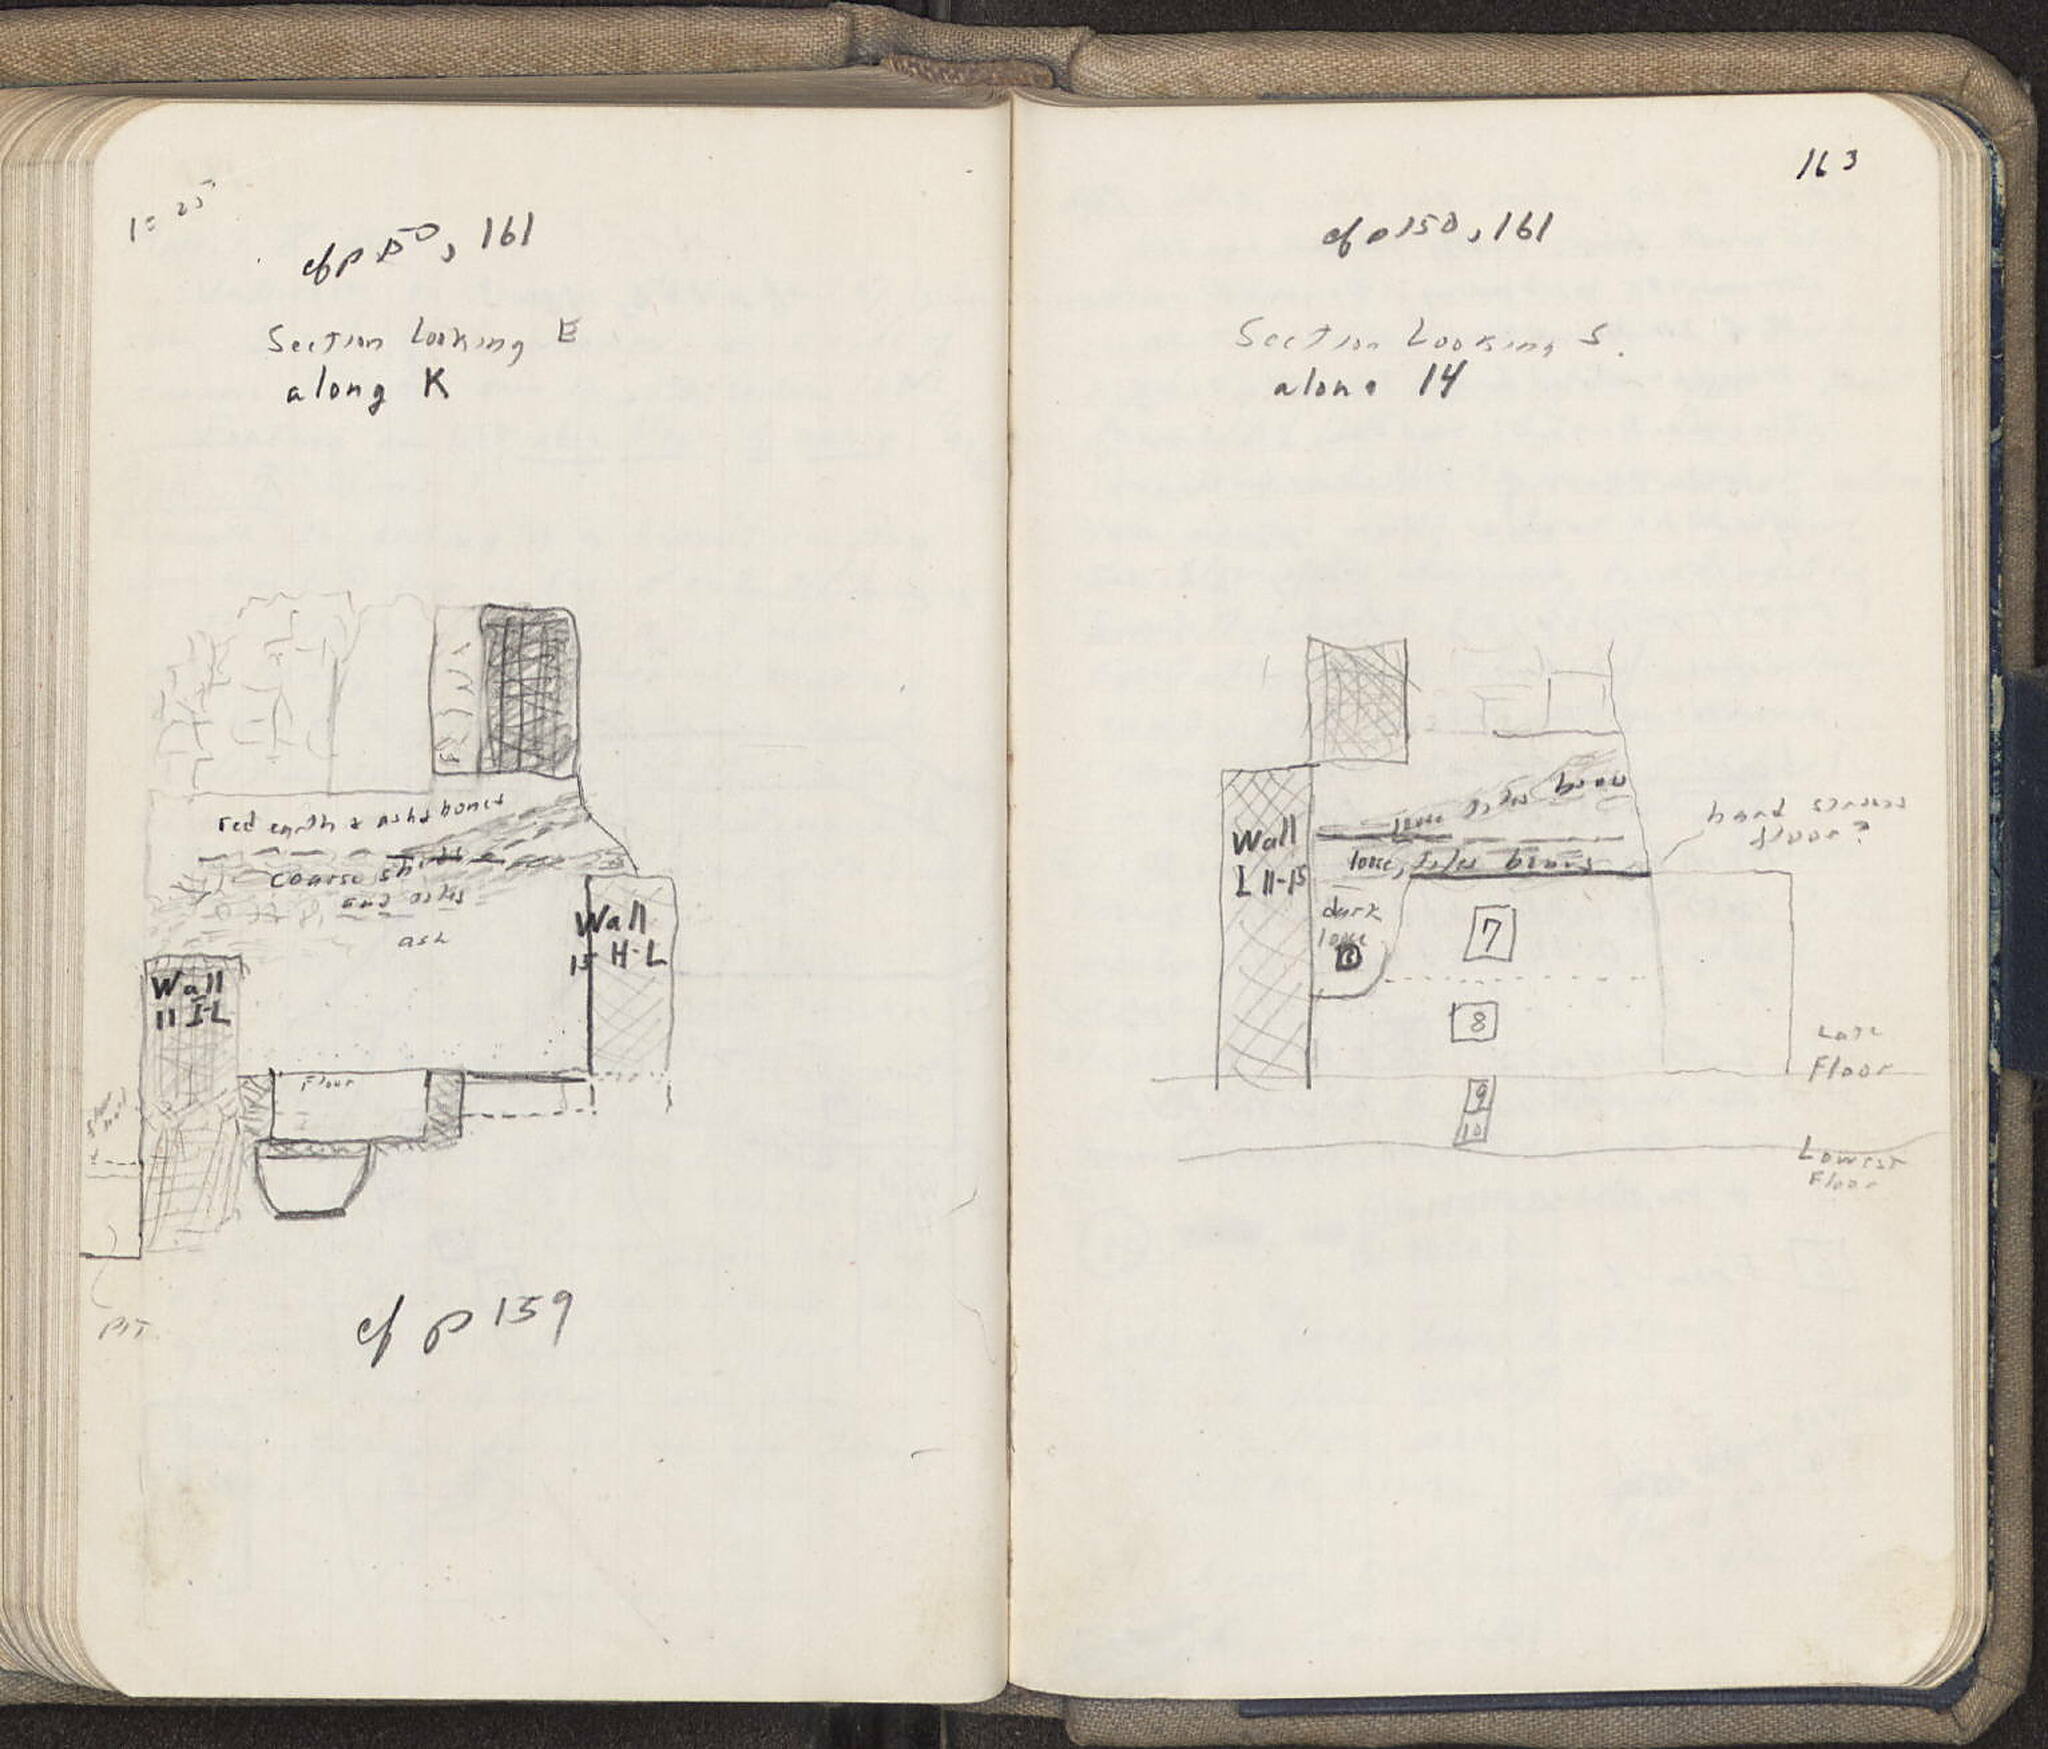 1 = 25
cf p 150, 161
Section Looking E
along K
red earth & ash & bones
coarse sh
and ashes
ash
Wall
15 H-L
Wall
11 I-L
Floor
Pit
cf p 159
163
cf p 150, 161
Section Looking S.
along 14
loose ashes bones
loose, ashes bones
hard
floor?
Wall
L 11-15
dark
loose
7
8
9
10
Late
Floor
Lowest
Floor